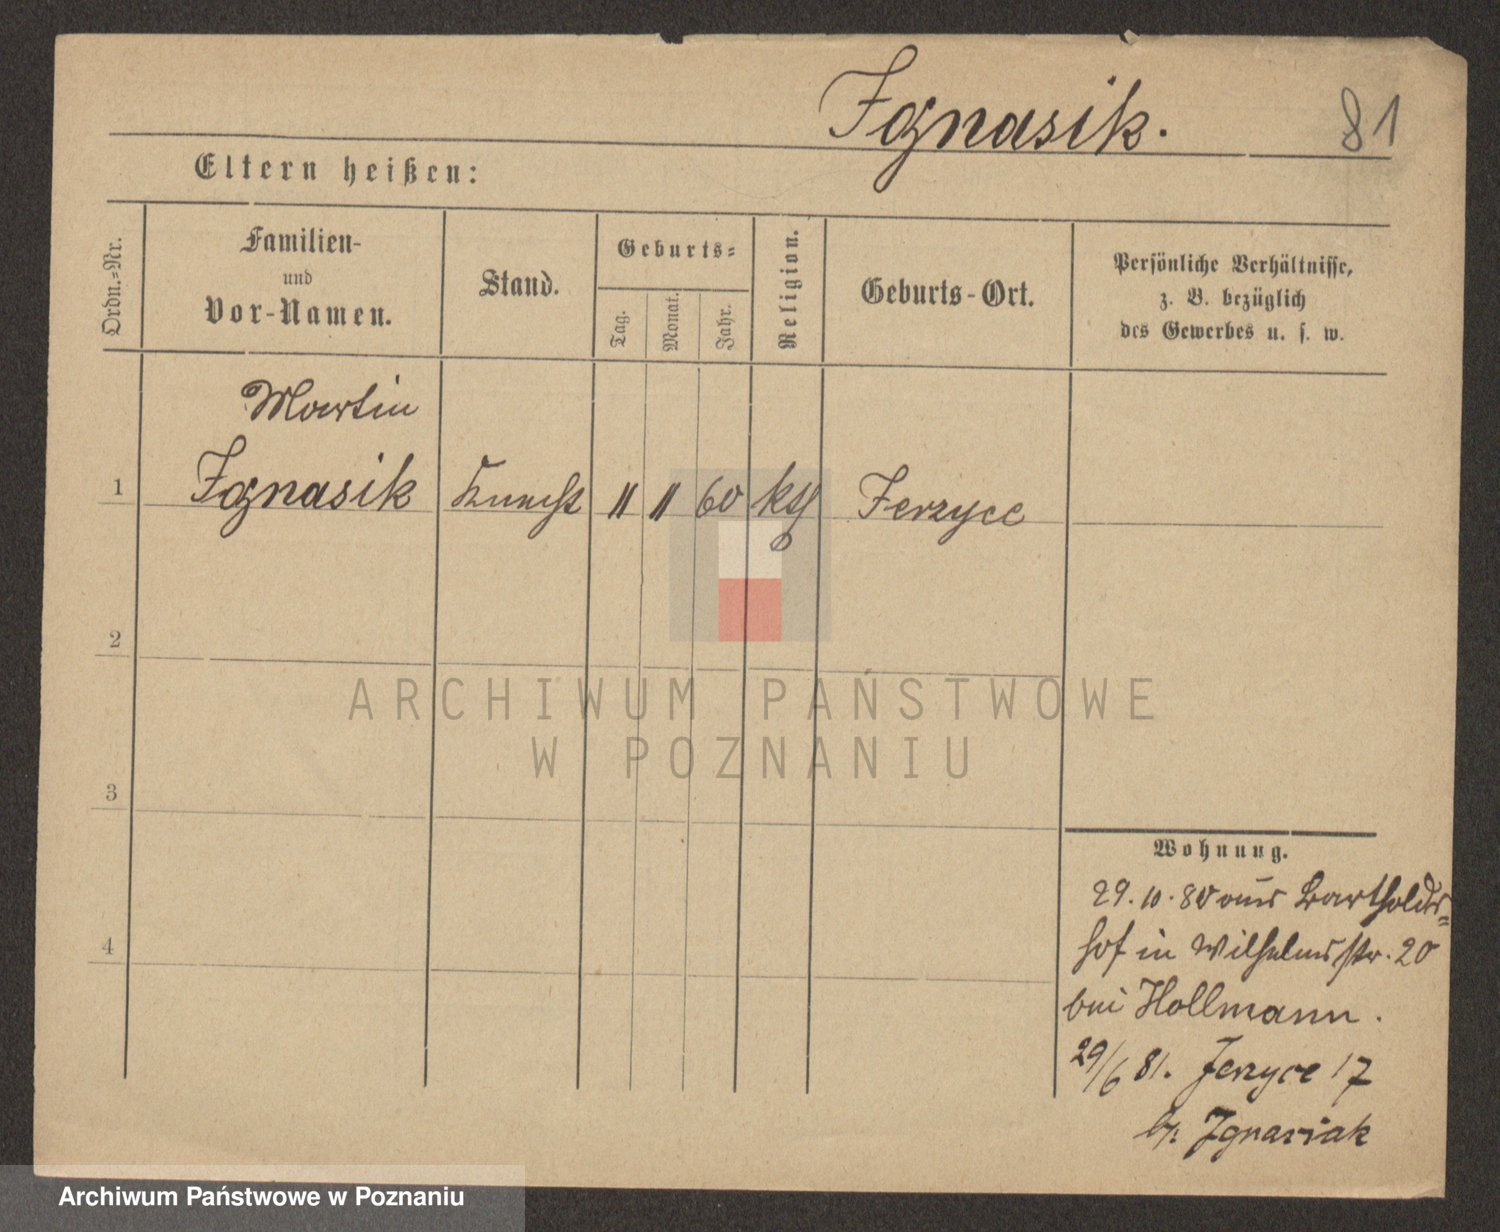 Ignasik.
81
Eltern heißen:
Ordn.=Nr.
Familien-
und
Vor-Namen.
Stand.
Geburts=
Tag.
Monat.
Jahr.
Religion.
Geburts-Ort.
Persönliche Verhältnisse,
z. B. bezüglich
des Gewerbes u. s. w.
Martin
1 Ignasik Knecht 11 11 60 kth Jerzyce
2
3
4
ARCHIWUM PAŃSTWOWE
W POZNANIU
Wohnung.
29.10.80 aus Bartholds=
hof in Wilhelmsstr. 20
bei Hollmann.
29/6 81. Jerzyce 17
b/: Ignasiak
Archiwum Państwowe w Poznaniu